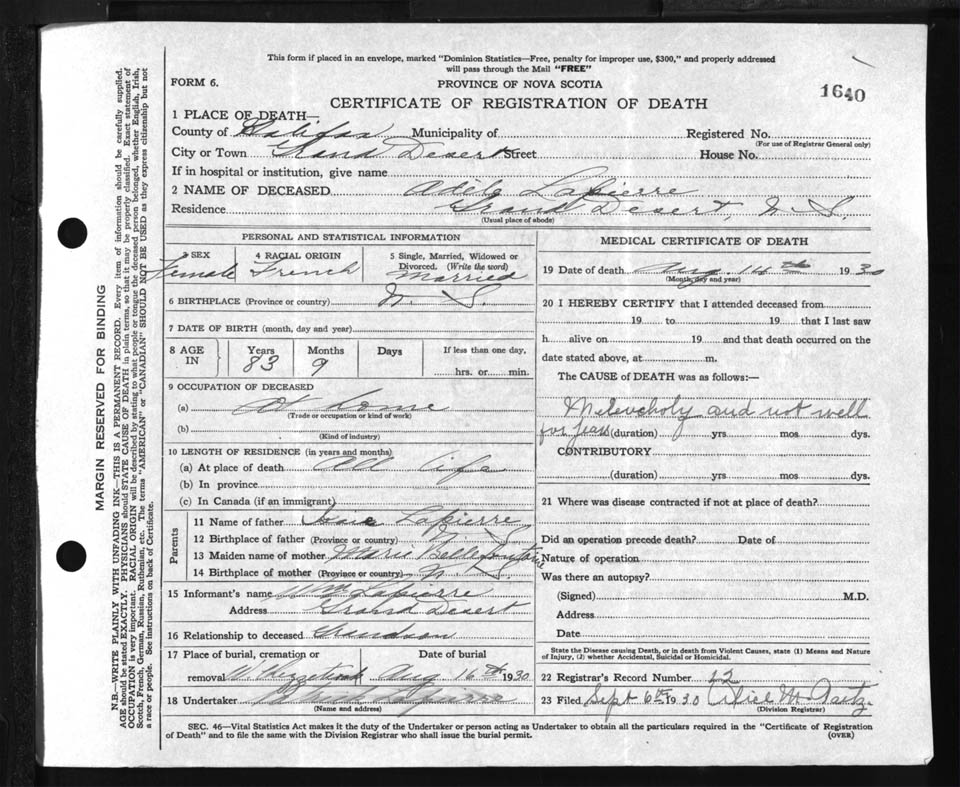 This form if placed in an envelope, marked "Dominion Statistics—Free, penalty for improper use, $300," and properly addressed
will pass through the Mail "FREE"
FORM 6.
PROVINCE OF NOVA SCOTIA
1640
CERTIFICATE OF REGISTRATION OF DEATH
1 PLACE OF DEATH—
County of Halifax Municipality of Registered No.
(For use of Registrar General only)
City or Town Grand Desert Street House No.
If in hospital or institution, give name
2 NAME OF DECEASED Adèle Lapierre
Residence Grand Desert, N. S.
(Usual place of abode)
PERSONAL AND STATISTICAL INFORMATION
3 SEX Female
4 RACIAL ORIGIN French
5 Single, Married, Widowed or
Divorced. (Write the word)
Married
6 BIRTHPLACE (Province or country) N. S.
7 DATE OF BIRTH (month, day and year)
8 AGE IN Years 83 Months 9 Days If less than one day,
hrs. or min.
9 OCCUPATION OF DECEASED
(a) At home
(Trade or occupation or kind of work)
(b)
(Kind of industry)
10 LENGTH OF RESIDENCE (in years and months)
(a) At place of death All life
(b) In province
(c) In Canada (if an immigrant)
Parents
11 Name of father Lapierre
12 Birthplace of father (Province or country) N. S.
13 Maiden name of mother Marie Bellefontaine
14 Birthplace of mother (Province or country) N. S.
15 Informant's name Wm Lapierre
Address Grand Desert
16 Relationship to deceased Grandson
17 Place of burial, cremation or Date of burial
removal W. Chezzetcook Aug 16th 1930
18 Undertaker Lapierre
(Name and address)
MEDICAL CERTIFICATE OF DEATH
19 Date of death Aug 14th 1930
(Month, day and year)
20 I HEREBY CERTIFY that I attended deceased from
19 to 19 that I last saw
h alive on 19 and that death occurred on the
date stated above, at m.
The CAUSE of DEATH was as follows:—
Melencholy and not well
for years (duration) yrs mos dys.
CONTRIBUTORY
(duration) yrs mos dys.
21 Where was disease contracted if not at place of death?
Did an operation precede death? Date of
Nature of operation
Was there an autopsy?
(Signed) M.D.
Address
Date
State the Disease causing Death, or in death from Violent Causes, state (1) Means and Nature
of Injury, (2) whether Accidental, Suicidal or Homicidal.
22 Registrar's Record Number 12
23 Filed Sept 6th 1930 Alice M. Gaetz
(Division Registrar)
SEC. 46—Vital Statistics Act makes it the duty of the Undertaker or person acting as Undertaker to obtain all the particulars required in the "Certificate of Registration
of Death" and to file the same with the Division Registrar who shall issue the burial permit.
(OVER)
MARGIN RESERVED FOR BINDING
N.B.—WRITE PLAINLY WITH UNFADING INK—THIS IS A PERMANENT RECORD. Every item of information should be carefully supplied.
AGE should be stated EXACTLY. PHYSICIANS should STATE CAUSE OF DEATH in plain terms, so that it may be properly classified. Exact statement of
OCCUPATION is very important. RACIAL ORIGIN will be described by stating to what people or tongue the deceased person belonged, whether English, Irish,
Scotch, French, German, Russian, Ruthenian, etc. The terms "AMERICAN" or "CANADIAN" SHOULD NOT BE USED as they express citizenship but not
a race or people. See instructions on back of Certificate.